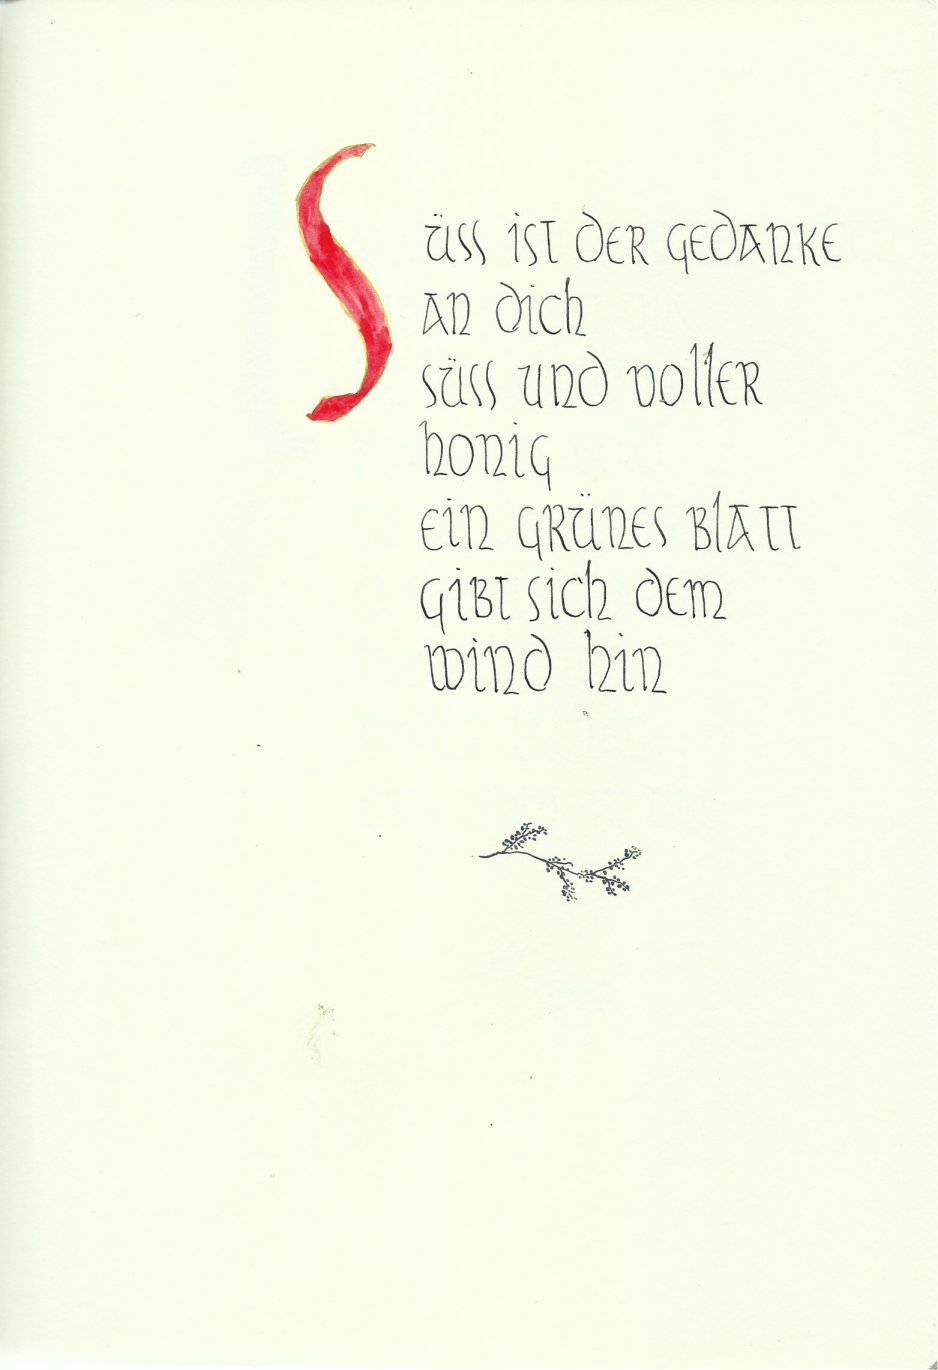 Süss ist der Gedanke
an dich
süss und voller
honig
ein grünes Blatt
gibt sich dem
wind hin